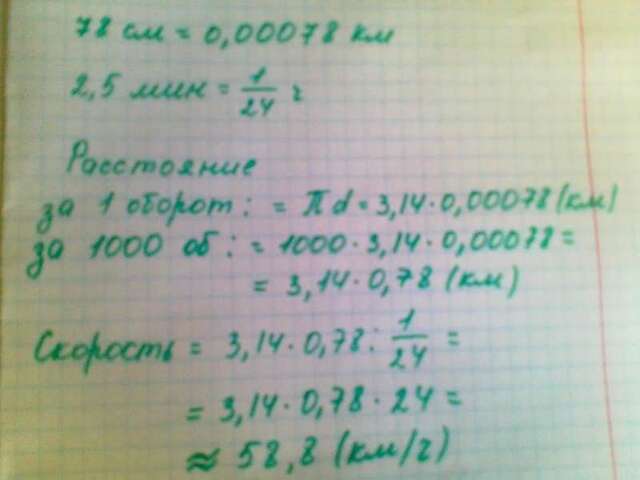 78 см = 0,00078 км
2,5 мин = 1/24 ч
Расстояние
за 1 оборот: = πd = 3,14·0,00078 (км)
за 1000 об: = 1000·3,14·0,00078 =
= 3,14·0,78 (км)
Скорость = 3,14·0,78 : 1/24 =
= 3,14·0,78·24 =
≈ 58,8 (км/ч)